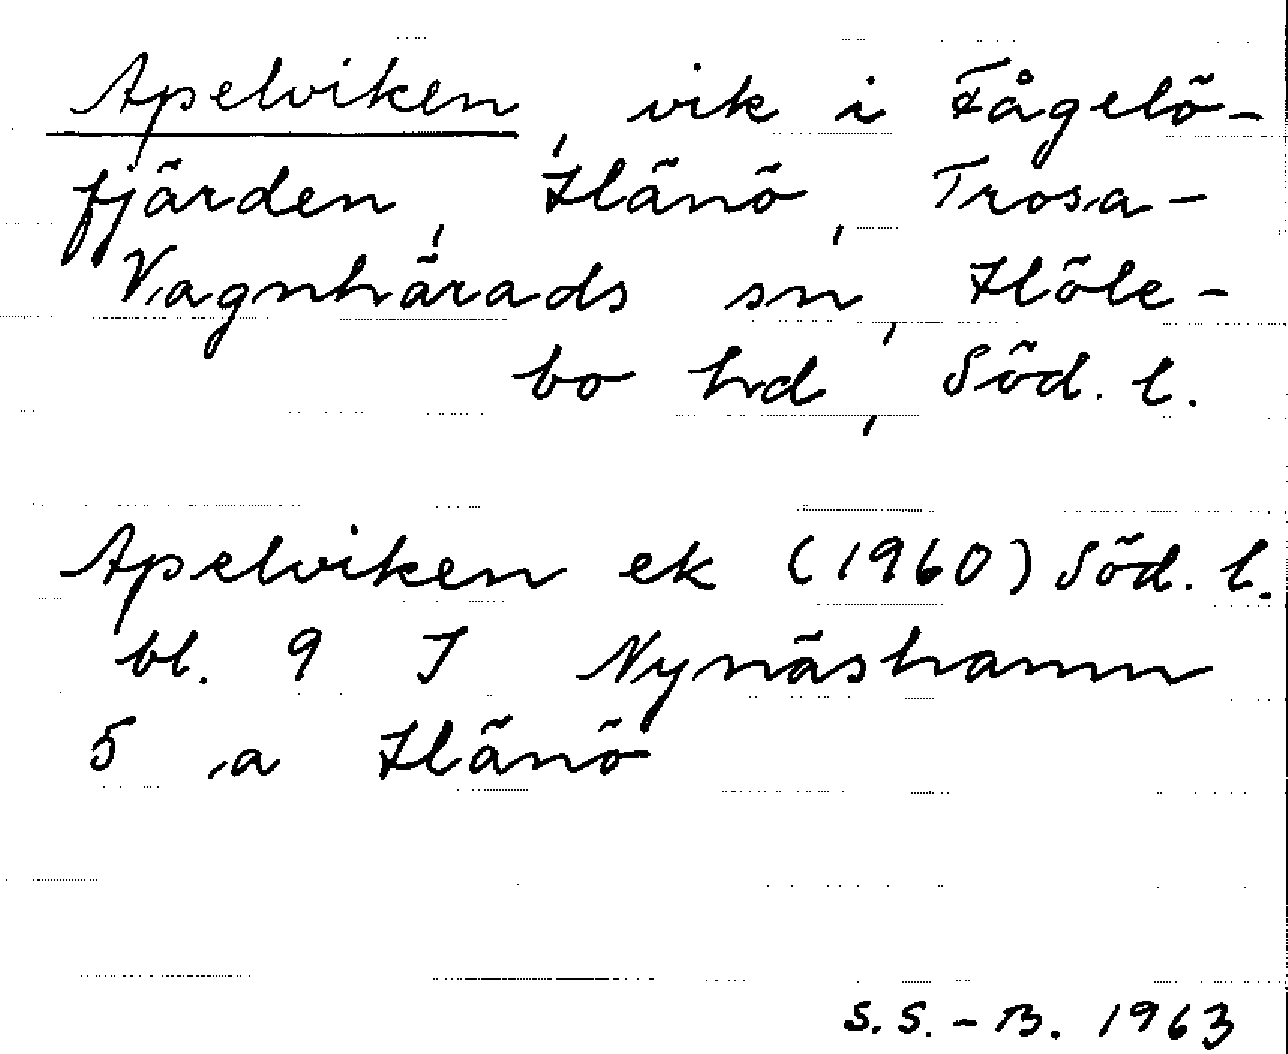 Apelviken, vik i Fågelö-
fjärden, Hänö, Trosa-
Vagnhärads sn, Höle-
bo hd, Söd. l.
Apelviken ek (1960) Söd. l.
bl. 9 I Nynäshamn
5 a Hänö
S.S.-B. 1963